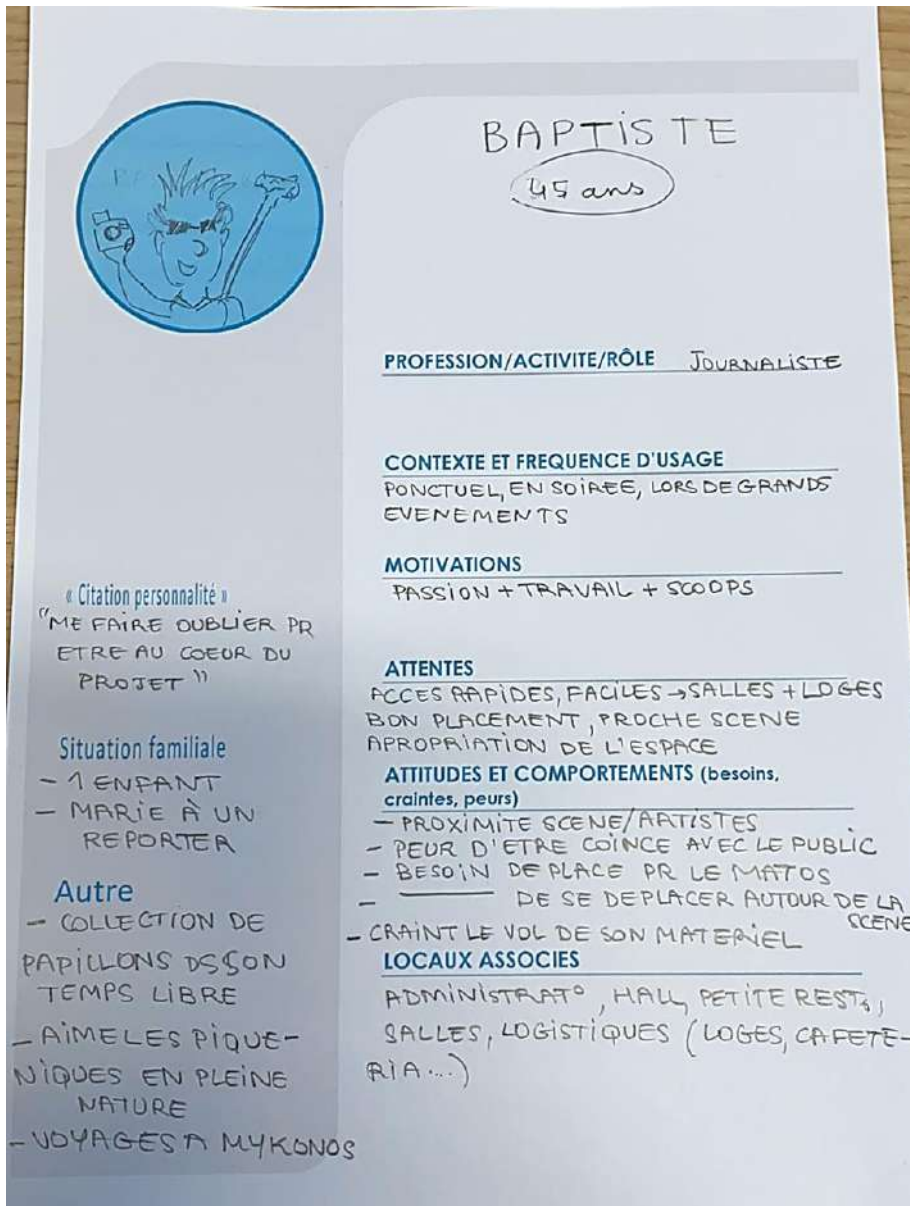 BAPTISTE
45 ans
PROFESSION/ACTIVITE/RÔLE JOURNALISTE
CONTEXTE ET FREQUENCE D'USAGE
PONCTUEL, EN SOIREE, LORS DE GRANDS
EVENEMENTS
MOTIVATIONS
PASSION + TRAVAIL + SCOOPS
ATTENTES
ACCES RAPIDES, FACILES → SALLES + LOGES
BON PLACEMENT, PROCHE SCENE
APROPRIATION DE L'ESPACE
ATTITUDES ET COMPORTEMENTS (besoins,
craintes, peurs)
- PROXIMITE SCENE/ARTISTES
- PEUR D'ETRE COINCE AVEC LE PUBLIC
- BESOIN DE PLACE PR LE MATOS
- —— DE SE DEPLACER AUTOUR DE LA
SCENE
- CRAINT LE VOL DE SON MATERIEL
LOCAUX ASSOCIES
ADMINISTRAT°, HALL, PETITE REST,
SALLES, LOGISTIQUES (LOGES, CAFETE-
RIA....)
« Citation personnalité »
"ME FAIRE OUBLIER PR
ETRE AU COEUR DU
PROJET"
Situation familiale
- 1 ENFANT
- MARIE À UN
REPORTER
Autre
- COLLECTION DE
PAPILLONS DS SON
TEMPS LIBRE
- AIME LES PIQUE-
NIQUES EN PLEINE
NATURE
- VOYAGES A MYKONOS